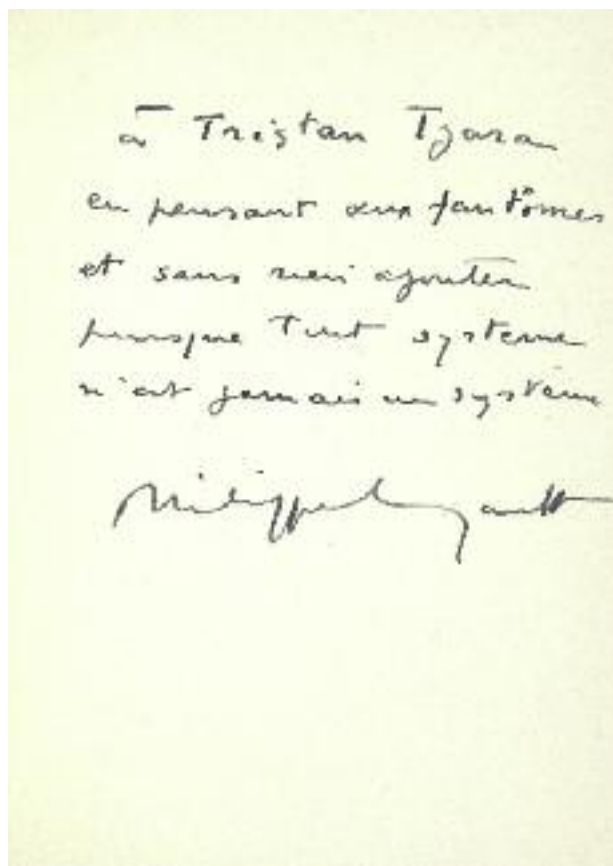 à Tristan Tzara
en pensant aux fantômes
et sans rien ajouter
puisque tout système
n'est jamais un système
Philippe Soupault